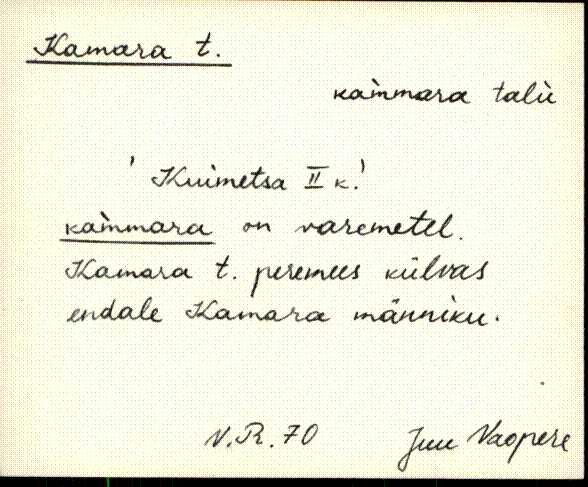 Kamara t.
kàmmara talu
' Kuimetsa II k.'
kàmmara on varemetel.
Kamara t. peremees külvas
endale Kamara männiku.
V.R. 70 Juu Vaopere